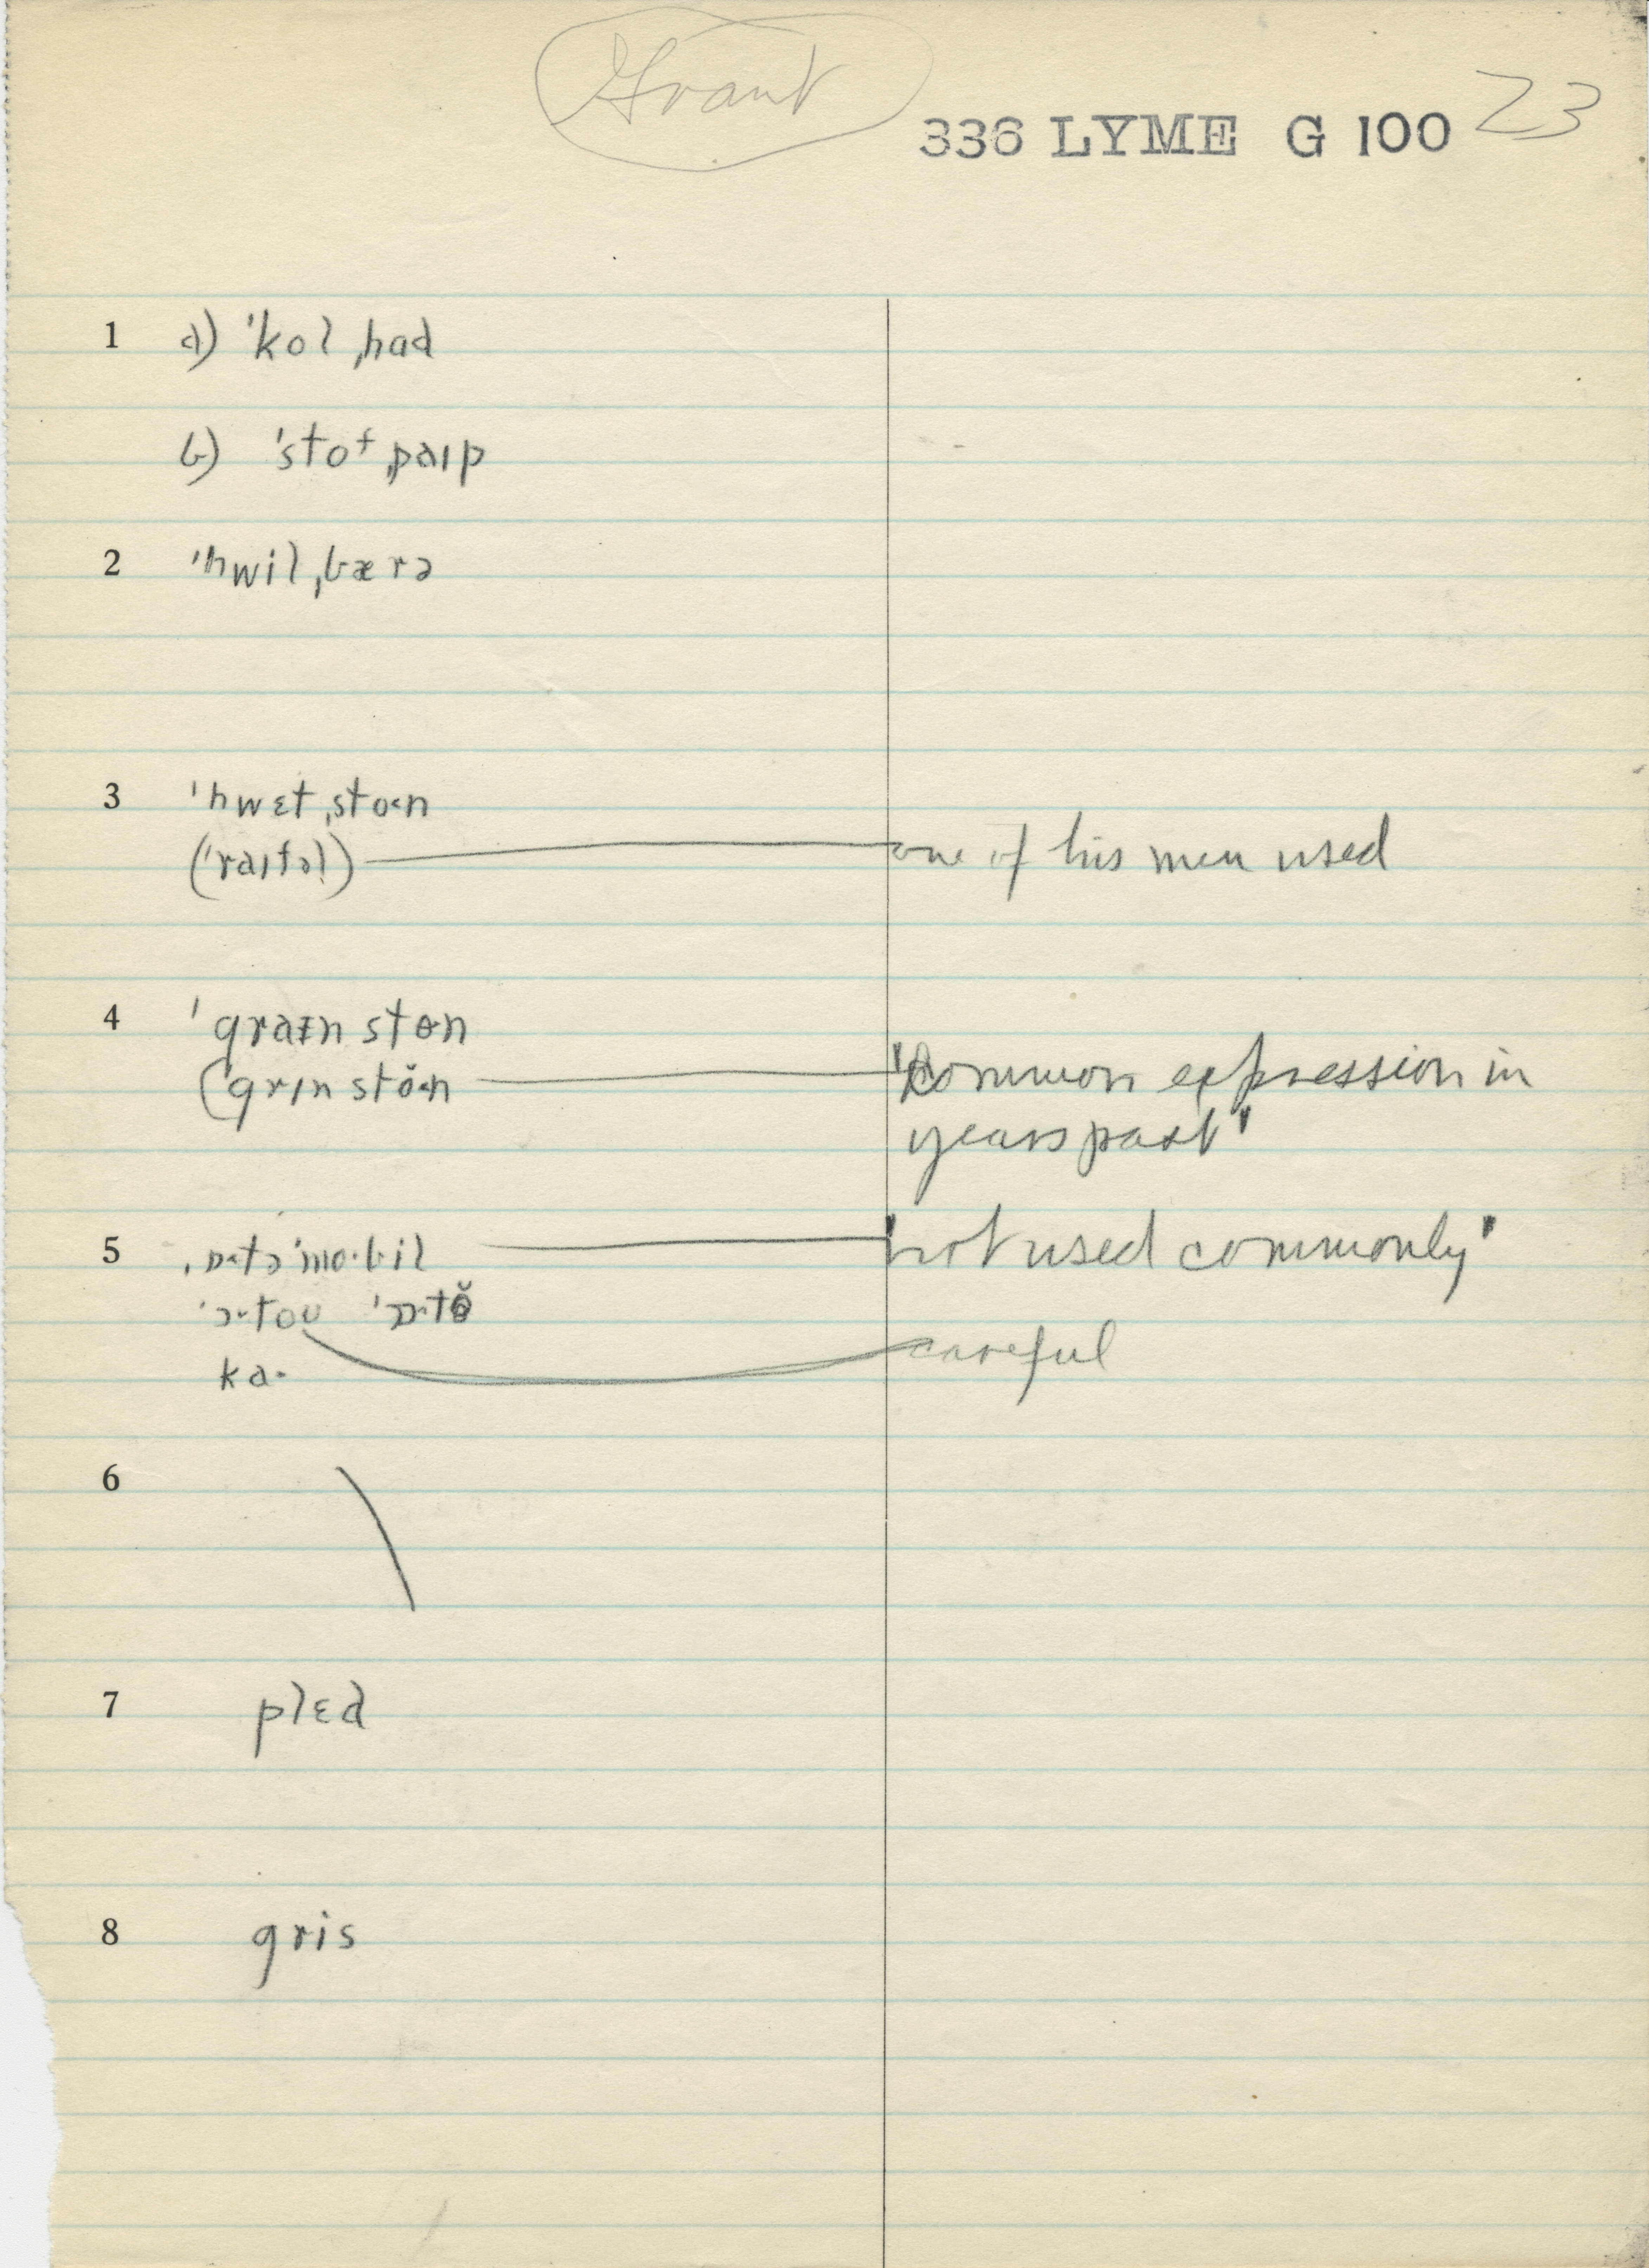 Grant
336 LYME G 100 23
1 a) 'kol ˌhad
b) 'stof ˌpaɪp
2 'hwil ˌbærə
3 'hwɛt ˌsto<n
('raɪfəl) one of his men used
4 'graɪn stɵn
('grɪn stŏ<n "common expression in
years past"
5 ˌɒ·tə'mo·bil "not used commonly"
'ɔ·toʊ 'ɒ·tɵ̆
ka· careful
6
7 plɛd
8 gris